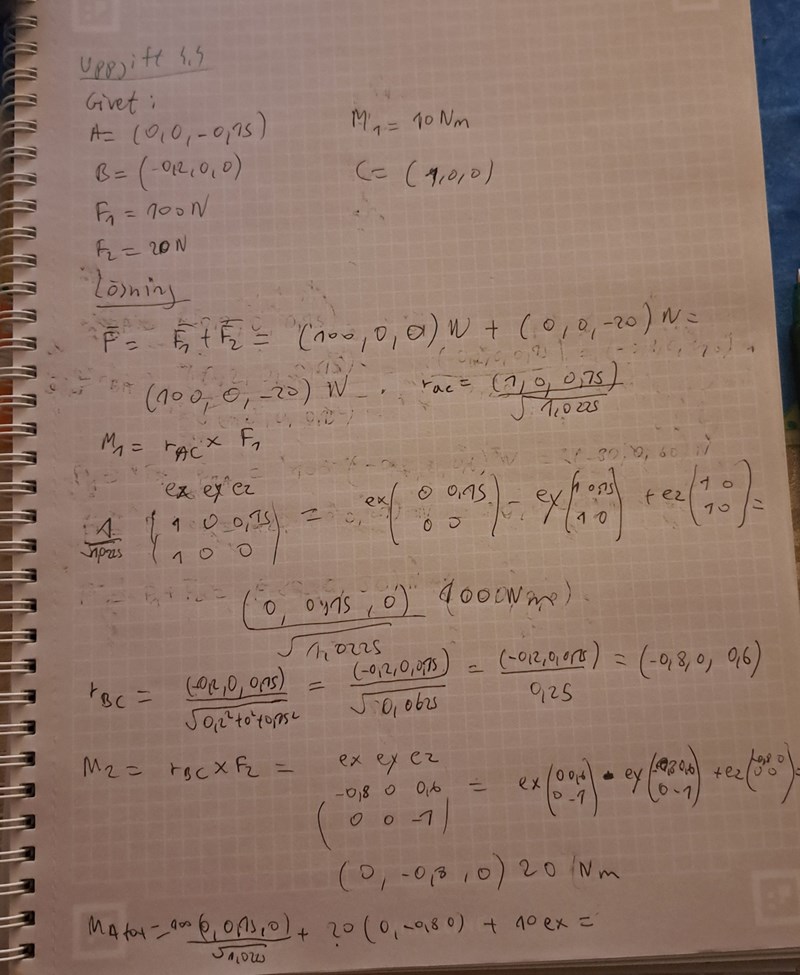 Uppgift 3,5
Givet:
A = (0,0,-0,15)
M₁ = 10 Nm
B = (-0,2,0,0)
C = (1,0,0)
F₁ = 100 N
F₂ = 20 N
Lösning
F̄ = F̄₁ + F̄₂ = (100, 0, 0) N + (0, 0, -20) N =
(100, 0, -20) N . r_AC = (1, 0, 0,15) / √1,0225
M₁ = r_AC × F₁
ex ey ez
1/√1,0225 (1 0 0,15 / 1 0 0) = ex (0 0,15 / 0 0) - ey (1 0,15 / 1 0) + ez (1 0 / 1 0) =
(0, 0,15, 0) / √1,0225
r_BC = (-0,2, 0, 0,15) / √0,2²+0²+0,15² = (-0,2, 0, 0,15) / √0,0625 = (-0,2, 0, 0,15) / 0,25 = (-0,8, 0, 0,6)
M₂ = r_BC × F₂ = ex ey ez
(-0,8 0 0,6 / 0 0 -1) = ex (0 0,6 / 0 -1) - ey (-0,8 0,6 / 0 -1) + ez (-0,8 0 / 0 0) =
(0, -0,8, 0) 20 Nm
M_A tot = 100 (0, 0,15, 0) / √1,0225 + 20 (0, -0,8 0) + 10 ex =